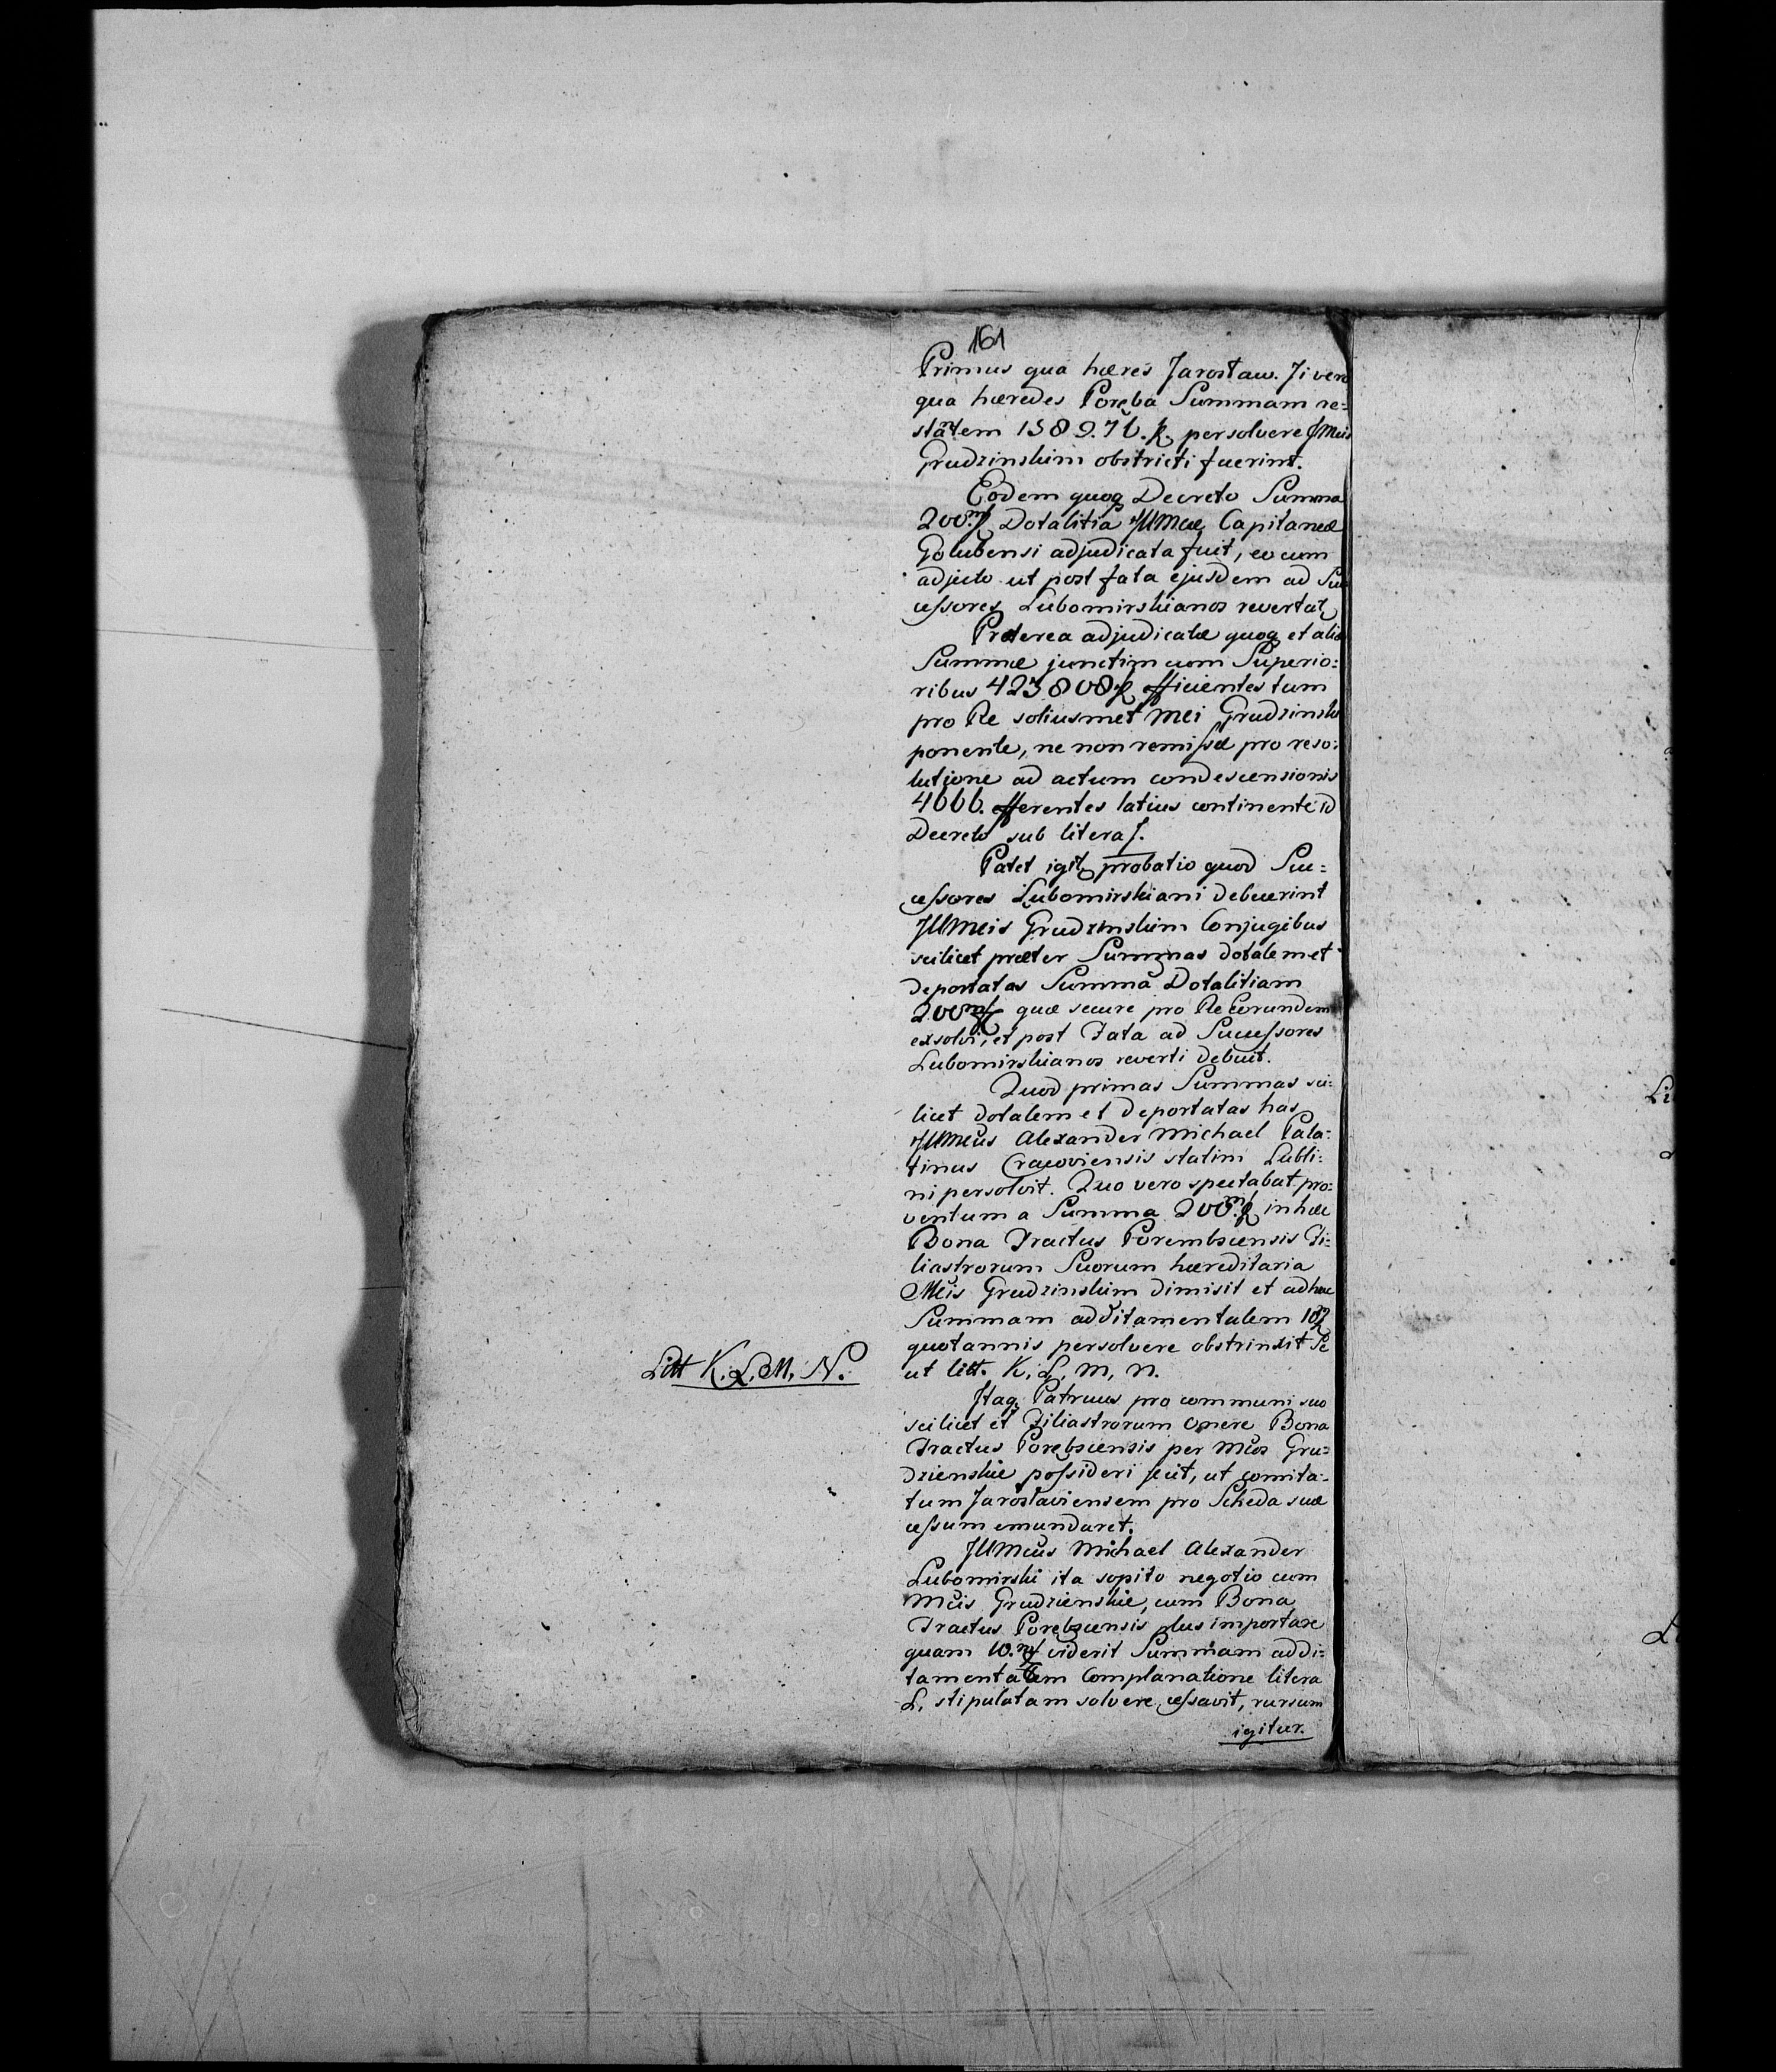 161
Primus qua hæres Jarosław. Ji vero
qua hæredes Poręba Summam re=
stãtem 158976. f. persolvere JMeis
Grudzinskim obstricti fuerint.
Eodem quoq Decreto Summa
200m/f Dotalitia JllMæ Capitaneæ
Golubensi adjudicata fuit, eo cum
adjecto ut post fata ejusdem ad Suc
cessores Lubomirskianos revertat
Præterea adjudicatæ quoq et aliæ
Summæ junctim cum Superio:
ribus 423808 f efficientes tum
pro Re soliusmet Mci Grudzinsk
ponente, ne non remissæ pro reso:
lutione ad actum condescensionis
4666. efferentes latius continente id
Decreto sub litera J.
Patet igit probatio quod Suc:
cessores Lubomirskiani debuerint
JllMcis Grudzinskim Conjugibus
scilicet præter Summas dotalem et
deportatas Summã Dotalitiam
200m/f quæ secure pro Re Eorundem
exsolvi, et post Fata ad Successores
Lubomirskianos reverti debuit.
Quod primas Summas sci:
licet dotalem et deportatas has
JllMcus Alexander Michael Pala:
tinus Cracoviensis statim Lubli:
ni persolvit. Quo vero spectabat pro:
ventum a Summa 200m/f in hæc
Bona Tractus Porembscensis Fi:
liastrorum Suorum hæreditaria
Mcis Grudzinskim dimisit et adhuc
Summam additamentalem 10
quotannis persolvere obstrinxit Se
ut litt. K, L, M, N.
Litt K. L. M. N.
Itaq Patruus pro communi suo
scilicet et Filiastrorum Onere Bona
Tractus Porębscensis per Mcos Gru=
dzienskie possideri fecit, ut comita:
tum Jaroslaviensem pro Scheda suæ
cessum emundaret.
JllMcus Michael Alexander
Lubomirski ita sopito negotio cum
Mcis Grudzienskie, cum Bona
Tractus Porębscensis plus importare
quam 10.m/f viderit Summam addi=
tamentalem Complanatione litera
L, stipulatam solvere cessavit, rursum
igitur.